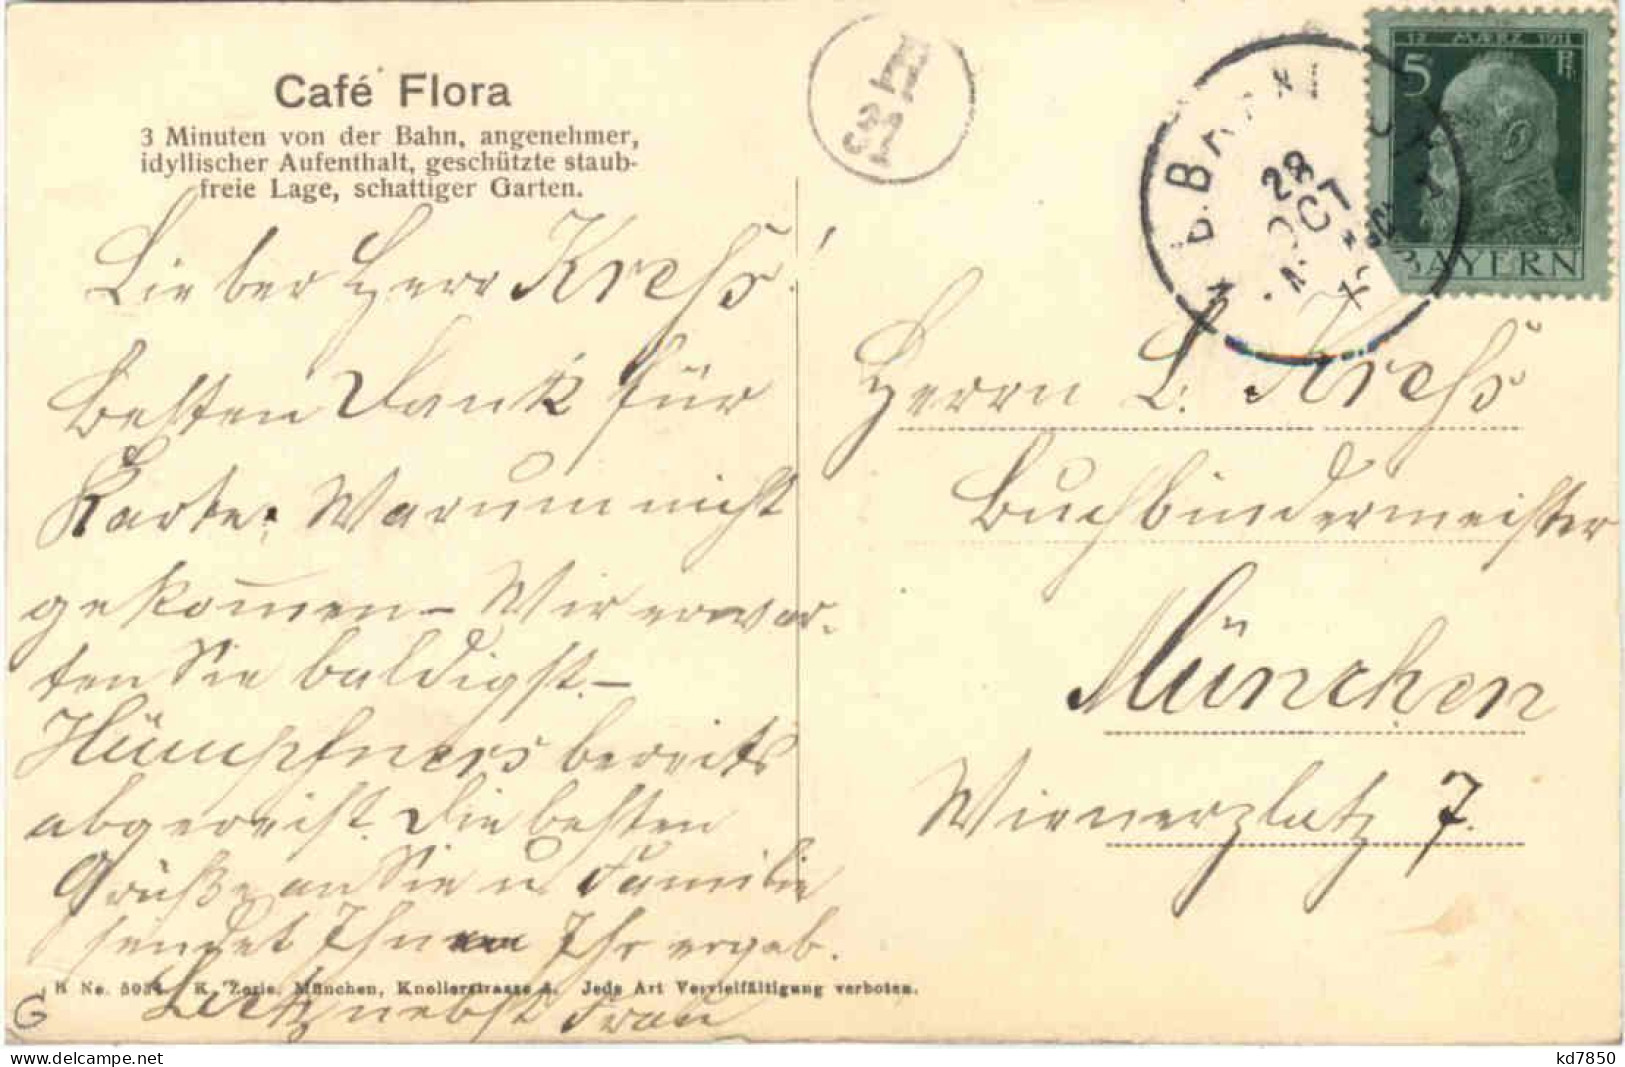 Café Flora
3 Minuten von der Bahn, angenehmer,
idyllischer Aufenthalt, geschützte staub-
freie Lage, schattiger Garten.
Lieber Herr Kreß!
Besten Dank für
Karte. Warum nicht
gekommen – Wir erwar-
ten Sie baldigst. –
Hümpfners bereits
abgereist. Die besten
Grüße an Sie u Familie
sendet Ihnen Ihr ergeb.
Lutz nebst Frau
K. Zerle, München, Knollerstrasse Jede Art Vervielfältigung verboten.
G
12 MÄRZ 1911
5 Pf
BAYERN
28
OCT
Herrn L. Kreß
Buchbindermeister
München
Wienerplatz 7.
kd7850
delcampe.net